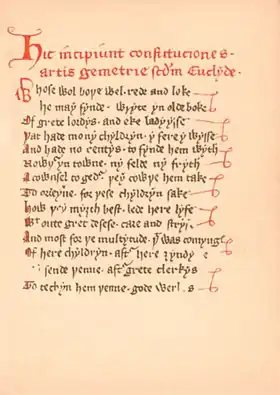 Hic incipiunt constituciones
artis gemetrie scdm Euclyde.
Whose wol boþe wel rede and loke
He may fynde wryte yn olde boke
Of grete lordys and eke ladyysse
Þat hade mony chyldryn y fere y wysse
And hade no rentys to fynde hem wyth
Nowþer yn towne ny felde ny fryth
A cownsel to gedr þey cowþe hem take
To ordeyne for þese chyldryn sake
How þey myȝth best lede here lyfe
Wt oute gret desese care and stryf
And most for þe multytude þt was comynge
Of here chyldryn aftr here ȝyndynge
sende þenne aftr grete clerkys
To techyn hem þenne gode werkys